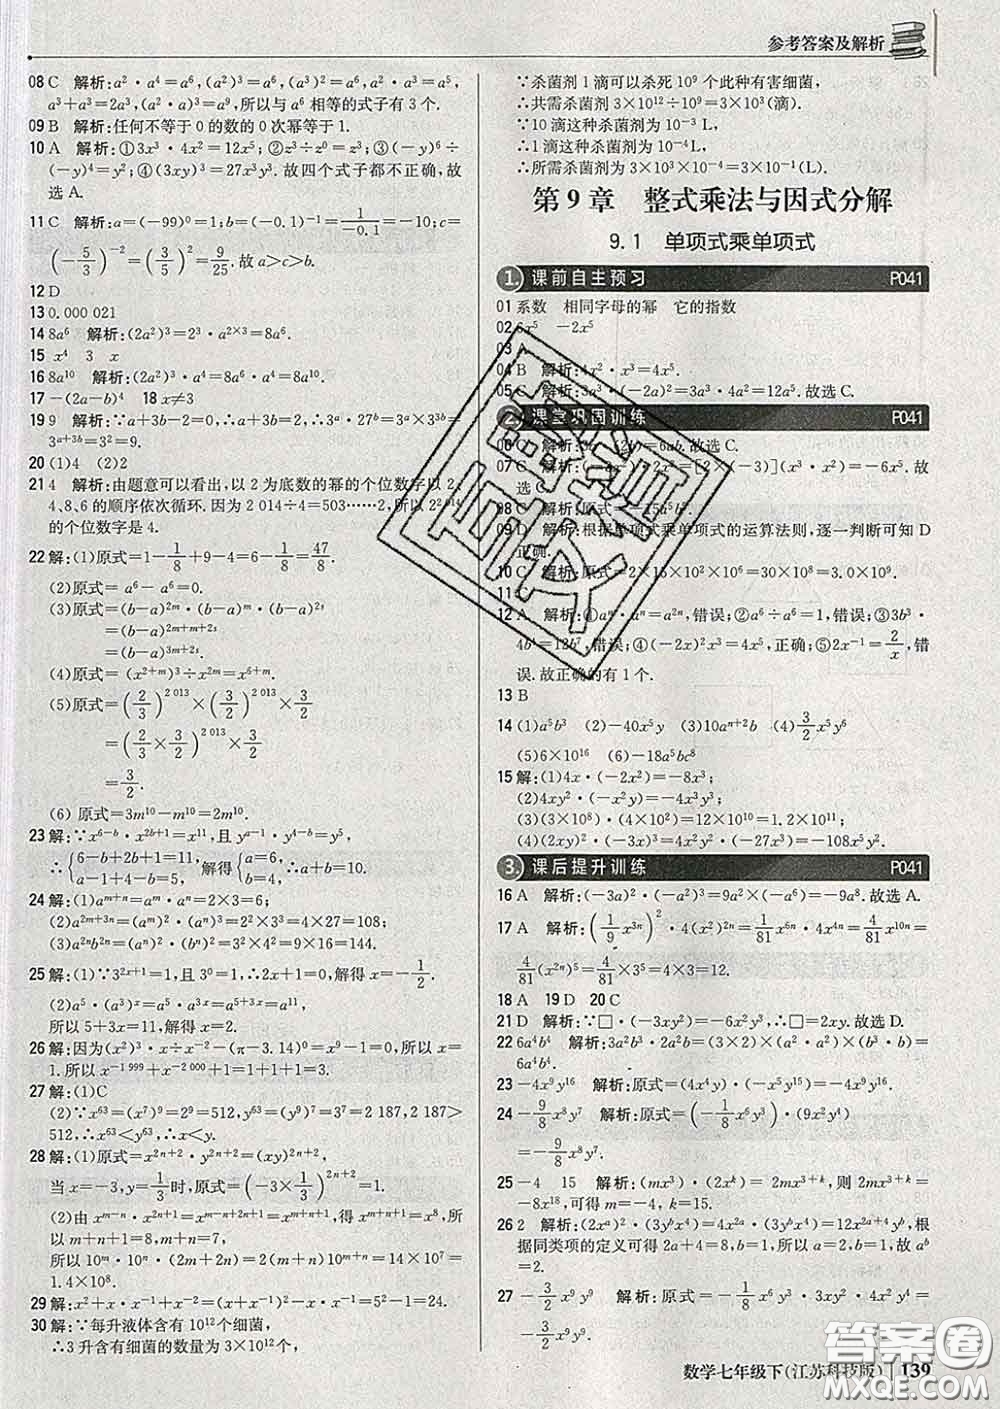 参考答案及解析
08 C 解析:a²·a⁴=a⁶,(a²)⁴=a⁸,a³·a²=a⁵,a³·a³=a⁶,
a³+a³=2a³,(a²)³=a⁶,所以与a⁶相等的式子有3个.
09 B 解析:任何不等于0的数的0次幂等于1.
10 A 解析:①3x³·4x²=12x⁵;②z³÷z⁰=z³;③(-y)⁶÷
(-y)⁴=y²;④(3xy)³=27x³y³.故四个式子都不正确.故
选A.
11 C 解析:a=(-99)⁰=1;b=(-0.1)⁻¹=1/(-0.1)=-10;c=
(-5/3)⁻²=(3/5)²=9/25.故a>c>b.
12 D
13 0.000 021
14 8a⁶ 解析:(2a²)³=2³·a²ˣ³=8a⁶.
15 x⁴ 3 x
16 8a¹⁰ 解析:(2a²)³·a⁴=8a⁶·a⁴=8a¹⁰.
17 -(2a-b)⁴ 18 x≠3
19 9 解析:∵a+3b-2=0,∴a+3b=2,∴3ᵃ·27ᵇ=3ᵃ×3³ᵇ=
3ᵃ⁺³ᵇ=3²=9.
20 (1)4 (2)2
21 4 解析:由题意可以看出,以2为底数的幂的个位数字以2、
4、8、6的顺序依次循环.因为2 014÷4=503……2,所以2²⁰¹⁴
的个位数字是4.
22 解:(1)原式=1-1/8+9-4=6-1/8=47/8.
(2)原式=a⁶-a⁶=0.
(3)原式=(b-a)²ᵐ·(b-a)ᵐ·(b-a)²
=(b-a)²ᵐ⁺ᵐ⁺²
=(b-a)³ᵐ⁺².
(4)原式=(x²⁺ᵐ)³÷x²ᵐ=xᵐ⁺⁶.
(5)原式=(2/3)^(2 013)×(3/2)^(2 013)×3/2
=(2/3×3/2)^(2 013)×3/2
=3/2.
(6)原式=3m¹⁰-m¹⁰=2m¹⁰.
23 解:∵x⁶⁻ᵇ·x²ᵇ⁺¹=x¹¹,且yᵃ⁻¹·y⁴⁻ᵇ=y⁵,
∴{6-b+2b+1=11, a-1+4-b=5, 解得{a=6, b=4.
24 解:(1)aᵐ⁺ⁿ=aᵐ·aⁿ=2×3=6;
(2)a²ᵐ⁺³ⁿ=(aᵐ)²·(aⁿ)³=4×27=108;
(3)a²ⁿb²ⁿ=(aⁿ)²·(bⁿ)²=3²×4²=9×16=144.
25 解:(1)∵3²ˣ⁺¹=1,且3⁰=1,∴2x+1=0,解得x=-1/2.
(2)a²·a³·aˣ·a²ˣ=a⁵·a³ˣ=a⁵⁺³ˣ=a¹¹,
所以5+3x=11,解得x=2.
26 解:因为(x²)³·x÷x⁻²-(π-3.14)⁰=x⁹-1=0,所以x=
1.所以x⁻¹ ⁹⁹⁹+x⁻² ⁰⁰⁰+1=1+1+1=3.
27 解:(1)C
(2)∵x⁶³=(x⁷)⁹=2⁹=512,y⁶³=(y⁹)⁷=3⁷=2 187,2 187>
512,∴x⁶³<y⁶³,∴x<y.
28 解:(1)原式=x²ⁿ⁺²·y²ⁿ⁺²=(xy)²ⁿ⁺².
当x=-3,y=1/3时,原式=(-3×1/3)²ⁿ⁺²=1.
(2)由xᵐ⁻ⁿ·x²ⁿ⁺¹=xᵐ⁻ⁿ⁺²ⁿ⁺¹=xᵐ⁺ⁿ⁺¹,得xᵐ⁺ⁿ⁺¹=x⁸,所
以m+n=7,
所以10ᵐ·10ⁿ·(2m+2n)=2(m+n)10ᵐ⁺ⁿ=14×10⁷=
1.4×10⁸.
29 解:x²+x·x⁻¹+x⁻²=(x+x⁻¹)²-x·x⁻¹=5²-1=24.
30 解:∵每升液体含有10¹²个细菌,
∴3升含有细菌的数量为3×10¹²个,
∵杀菌剂1滴可以杀死10⁹个此种有害细菌,
∴共需杀菌剂3×10¹²÷10⁹=3×10³(滴).
∵10滴这种杀菌剂为10⁻³ L,
∴1滴这种杀菌剂为10⁻⁴L,
∴所需杀菌剂为3×10³×10⁻⁴=3×10⁻¹(L).
第9章 整式乘法与因式分解
9.1 单项式乘单项式
1. 课前自主预习 P041
01 系数 相同字母的幂 它的指数
02 6x⁵ -2x⁵
03 A
04 B 解析:4x²·x³=4x⁵.
05 C 解析:3a³·(-2a)²=3a³·4a²=12a⁵.故选C.
2. 课堂巩固训练 P041
06 C 解析:3a·(2b)=6ab.故选C.
07 C 解析:(-3x²)·2x³=[2×(-3)](x³·x²)=-6x⁵.故
选C.
08 C 解析:原式=-15a³b².
09 D 解析:根据单项式乘单项式的运算法则,逐一判断可知D
正确.
10 C 解析:原式=2×15×10²×10⁶=30×10⁸=3.0×10⁹.
11 C
12 A 解析:①aⁿ·aⁿ=a²ⁿ,错误;②a⁶÷a⁶=1,错误;③3b³·
4b⁴=12b⁷,错误;④(-4x)·x⁵=-4x⁶,正确;⑤2x⁻¹=2/x,错
误.故正确的有1个.
13 B
14 (1)a⁵b³ (2)-40x⁵y (3)10aⁿ⁺²b (4)3/2x⁵y⁶
(5)6×10¹⁶ (6)-18a⁵bc⁸
15 解:(1)4x·(-2x²)=-8x³;
(2)4xy²·(-x²y)=-4x³y³;
(3)(3×10⁸)·(4×10²)=12×10¹⁰=1.2×10¹¹.
(4)(2xy²)·(-3x)³=4xy²·(-27x³)=-108x⁴y².
3. 课后提升训练 P041
16 A 解析:(-3a)²·(-a²)³=9a²×(-a⁶)=-9a⁸.故选A.
17 A 解析:(1/9x³ⁿ)²·4(x²)²ⁿ=1/81x⁶ⁿ·4x⁴ⁿ=4/81x¹⁰ⁿ=
4/81(x²ⁿ)⁵=4/81×3⁵=4×3=12.
18 A 19 D 20 C
21 D 解析:∵□·(-3xy²)=-6x²y³,∴□=2xy.故选D.
22 6a⁴b⁴ 解析:3a²b³·2a²b=(3×2)×(a²·a²)×(b³·b)=
6a⁴b⁴.
23 -4x⁹y¹⁶ 解析:原式=(4x⁶y⁴)·(-x³y¹²)=-4x⁹y¹⁶.
24 -9/8x⁸y⁷ 解析:原式=(-1/8x⁶y³)·(9x²y⁴)
=-9/8x⁸y⁷.
25 -4 15 解析:(mx³)·(2xᵏ)=2mx³⁺ᵏ,则2mx³⁺ᵏ=
-8x¹⁸,可得m=-4,k=15.
26 2 解析:(2xᵃ)²·(3yᵇx⁴)=4x²ᵃ·(3yᵇx⁴)=12x²ᵃ⁺⁴yᵇ,根
据同类项的定义可得2a+4=8,b=1.所以a=2,b=1.故aᵇ
=2.
27 -3/2x⁹y⁵ 解析:
-3/2x⁹y⁵.
数学七年级下(江苏科技版) 139
答案圈
MXQE.COM